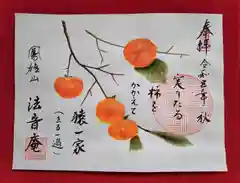 奉拝
令和五年 秋
実りたる
柿を
かかえて
猿一家
(まる一過)
鳳越山
法音庵